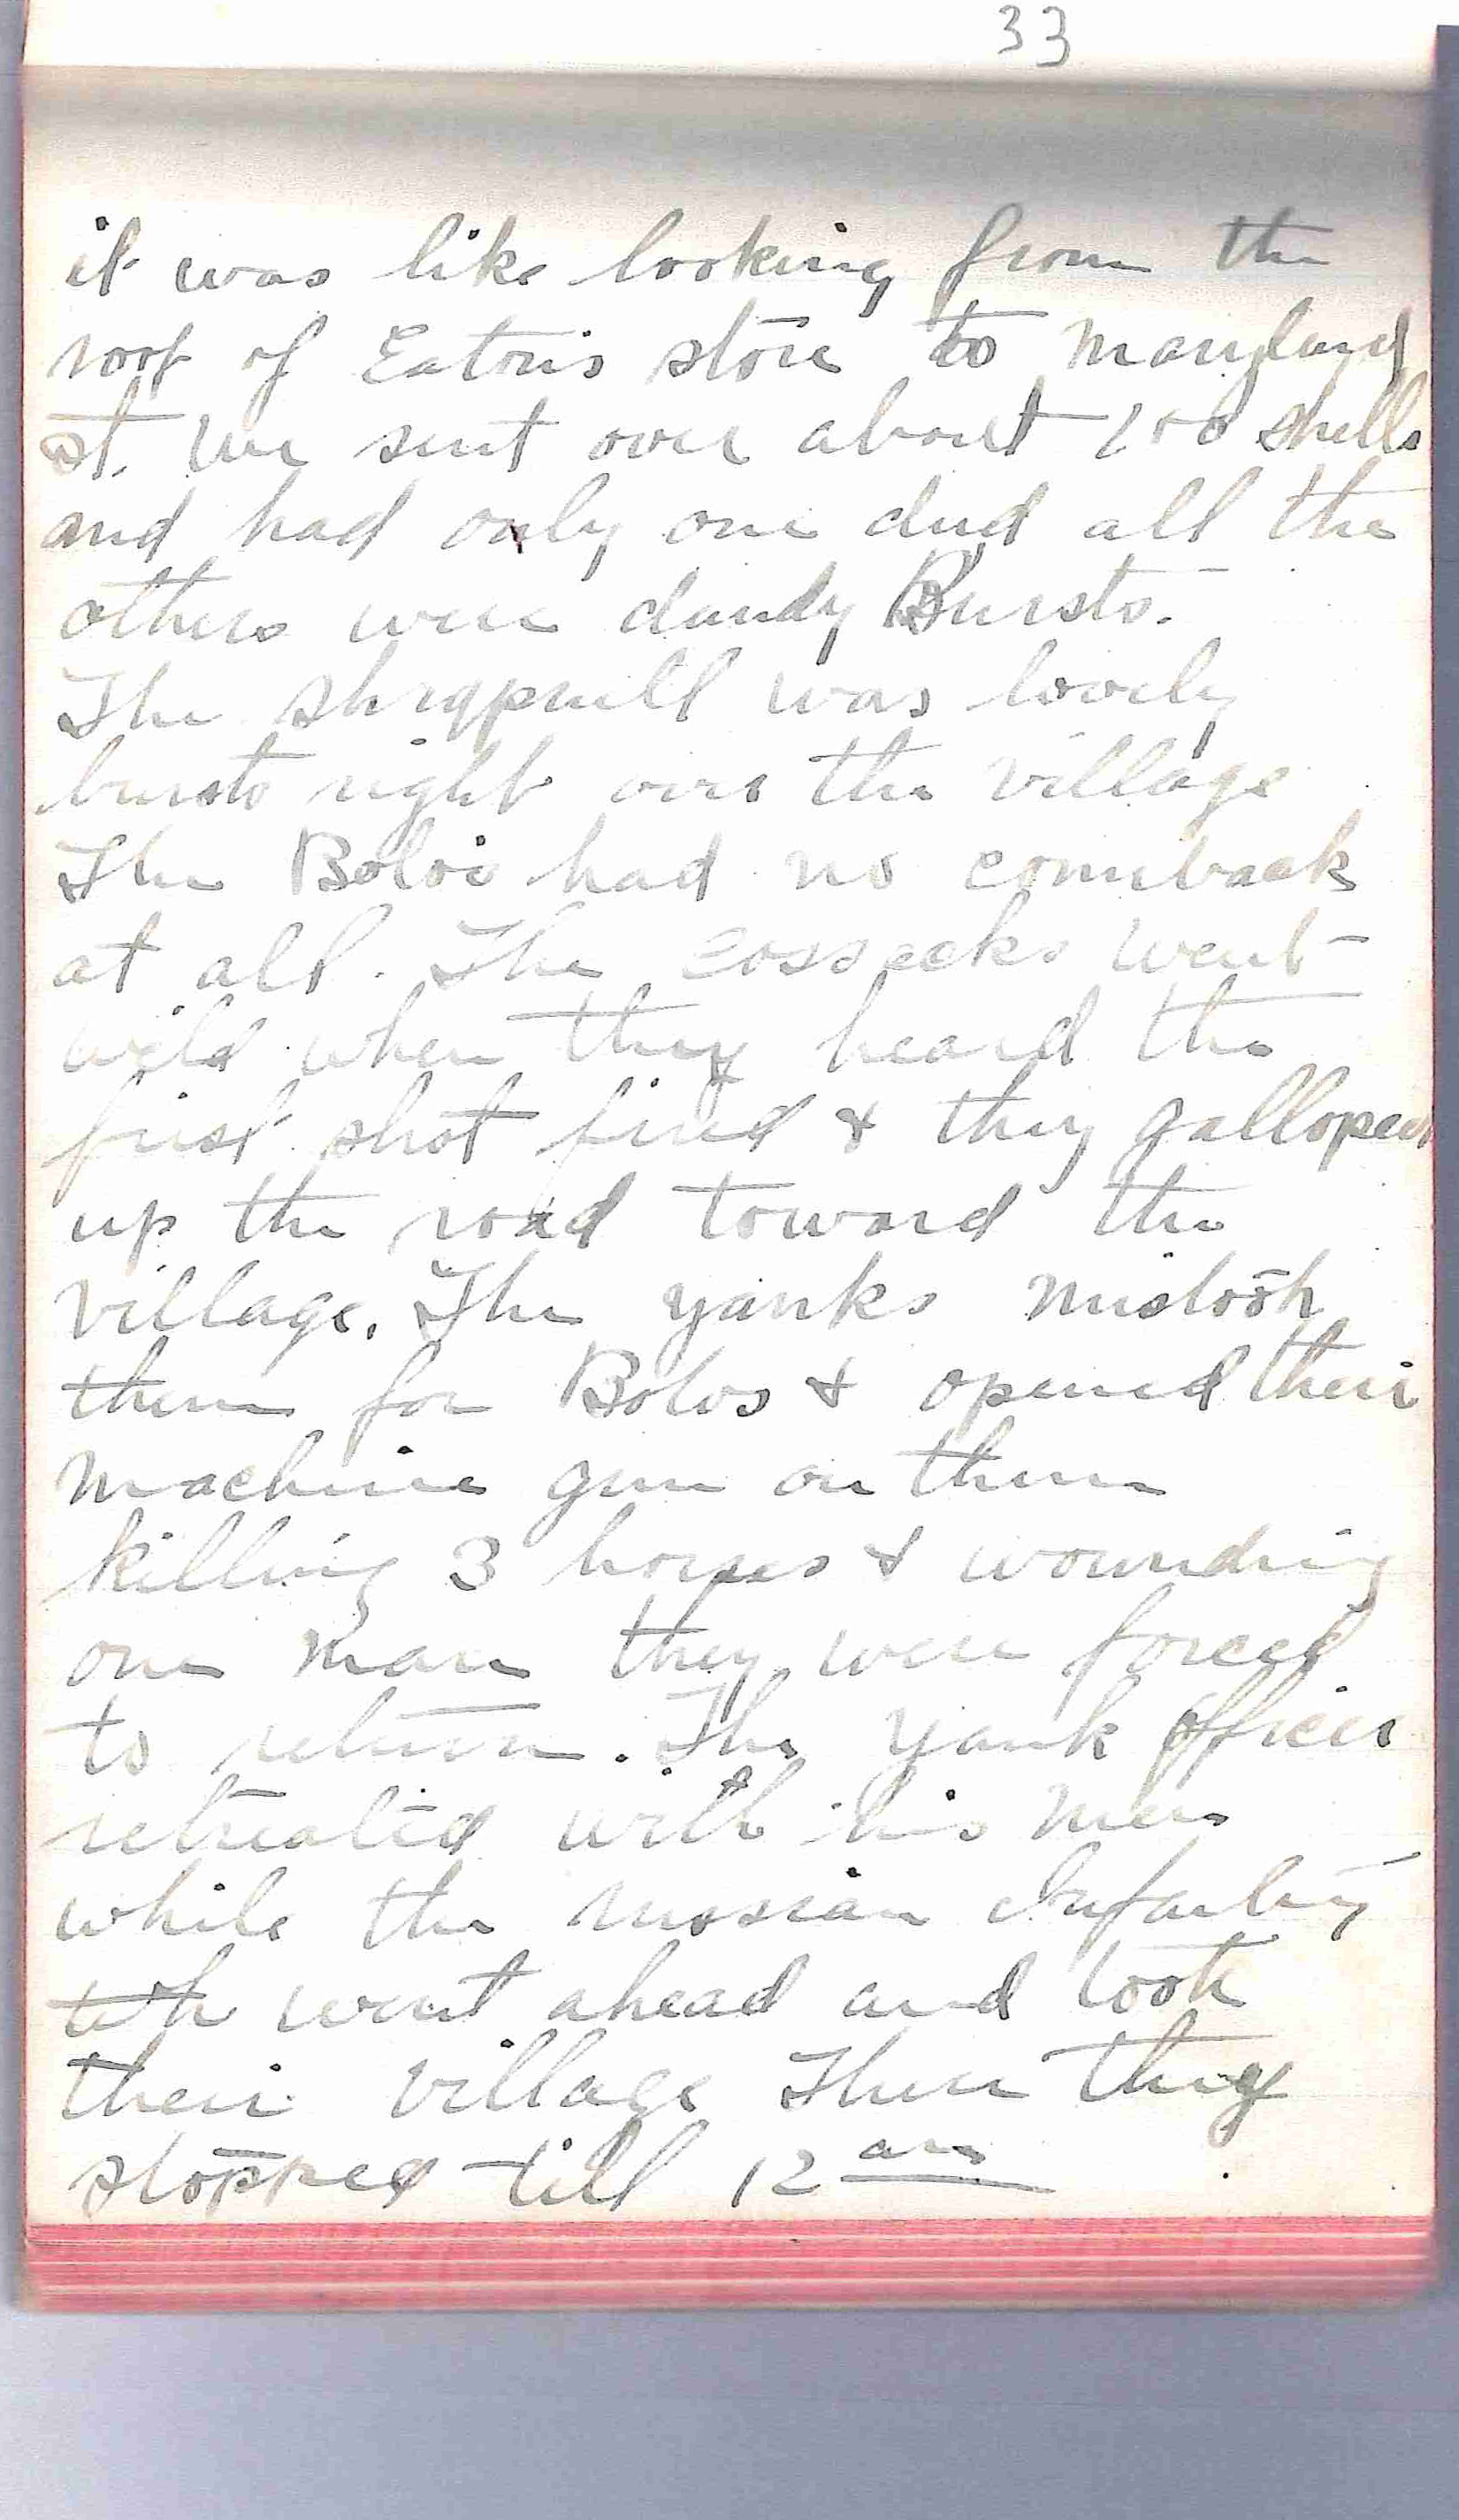 33
it was like looking from the
roof of Eaton's store to Maryland
st. We sent over about 200 shells
and had only one dud all the
others were dandy Bursts.
The shrapnell was lovely
bursts right over the village
The Bolos had no comeback
at all. The cossacks went
wild when they heard the
first shot fired & they galloped
up the road toward the
village. The yanks mistook
them for Bolos & opened their
machine gun on them
killing 3 horses & wounding
one man they were forced
to return. The Yank officer
retreated with his men
while the russian Infantry
went ahead and took
their village Then they
stopped till 12 am